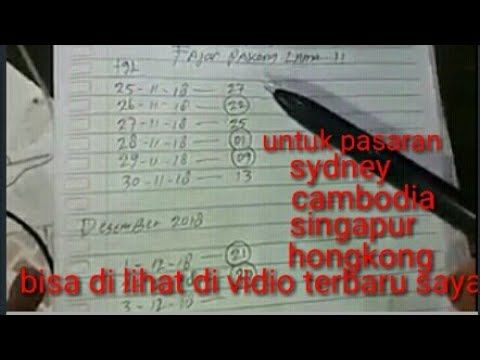 Fajar Pakong Lama 11
tgl
25-11-18 — 27
26-11-18 — 22
27-11-18 — 25
28-11-18 — 01
29-11-18 — 09
30-11-18 — 13
untuk pasaran
sydney
cambodia
singapur
hongkong
Desember 2018
1-12-18 — 21
bisa di lihat di vidio terbaru saya
3-12-18